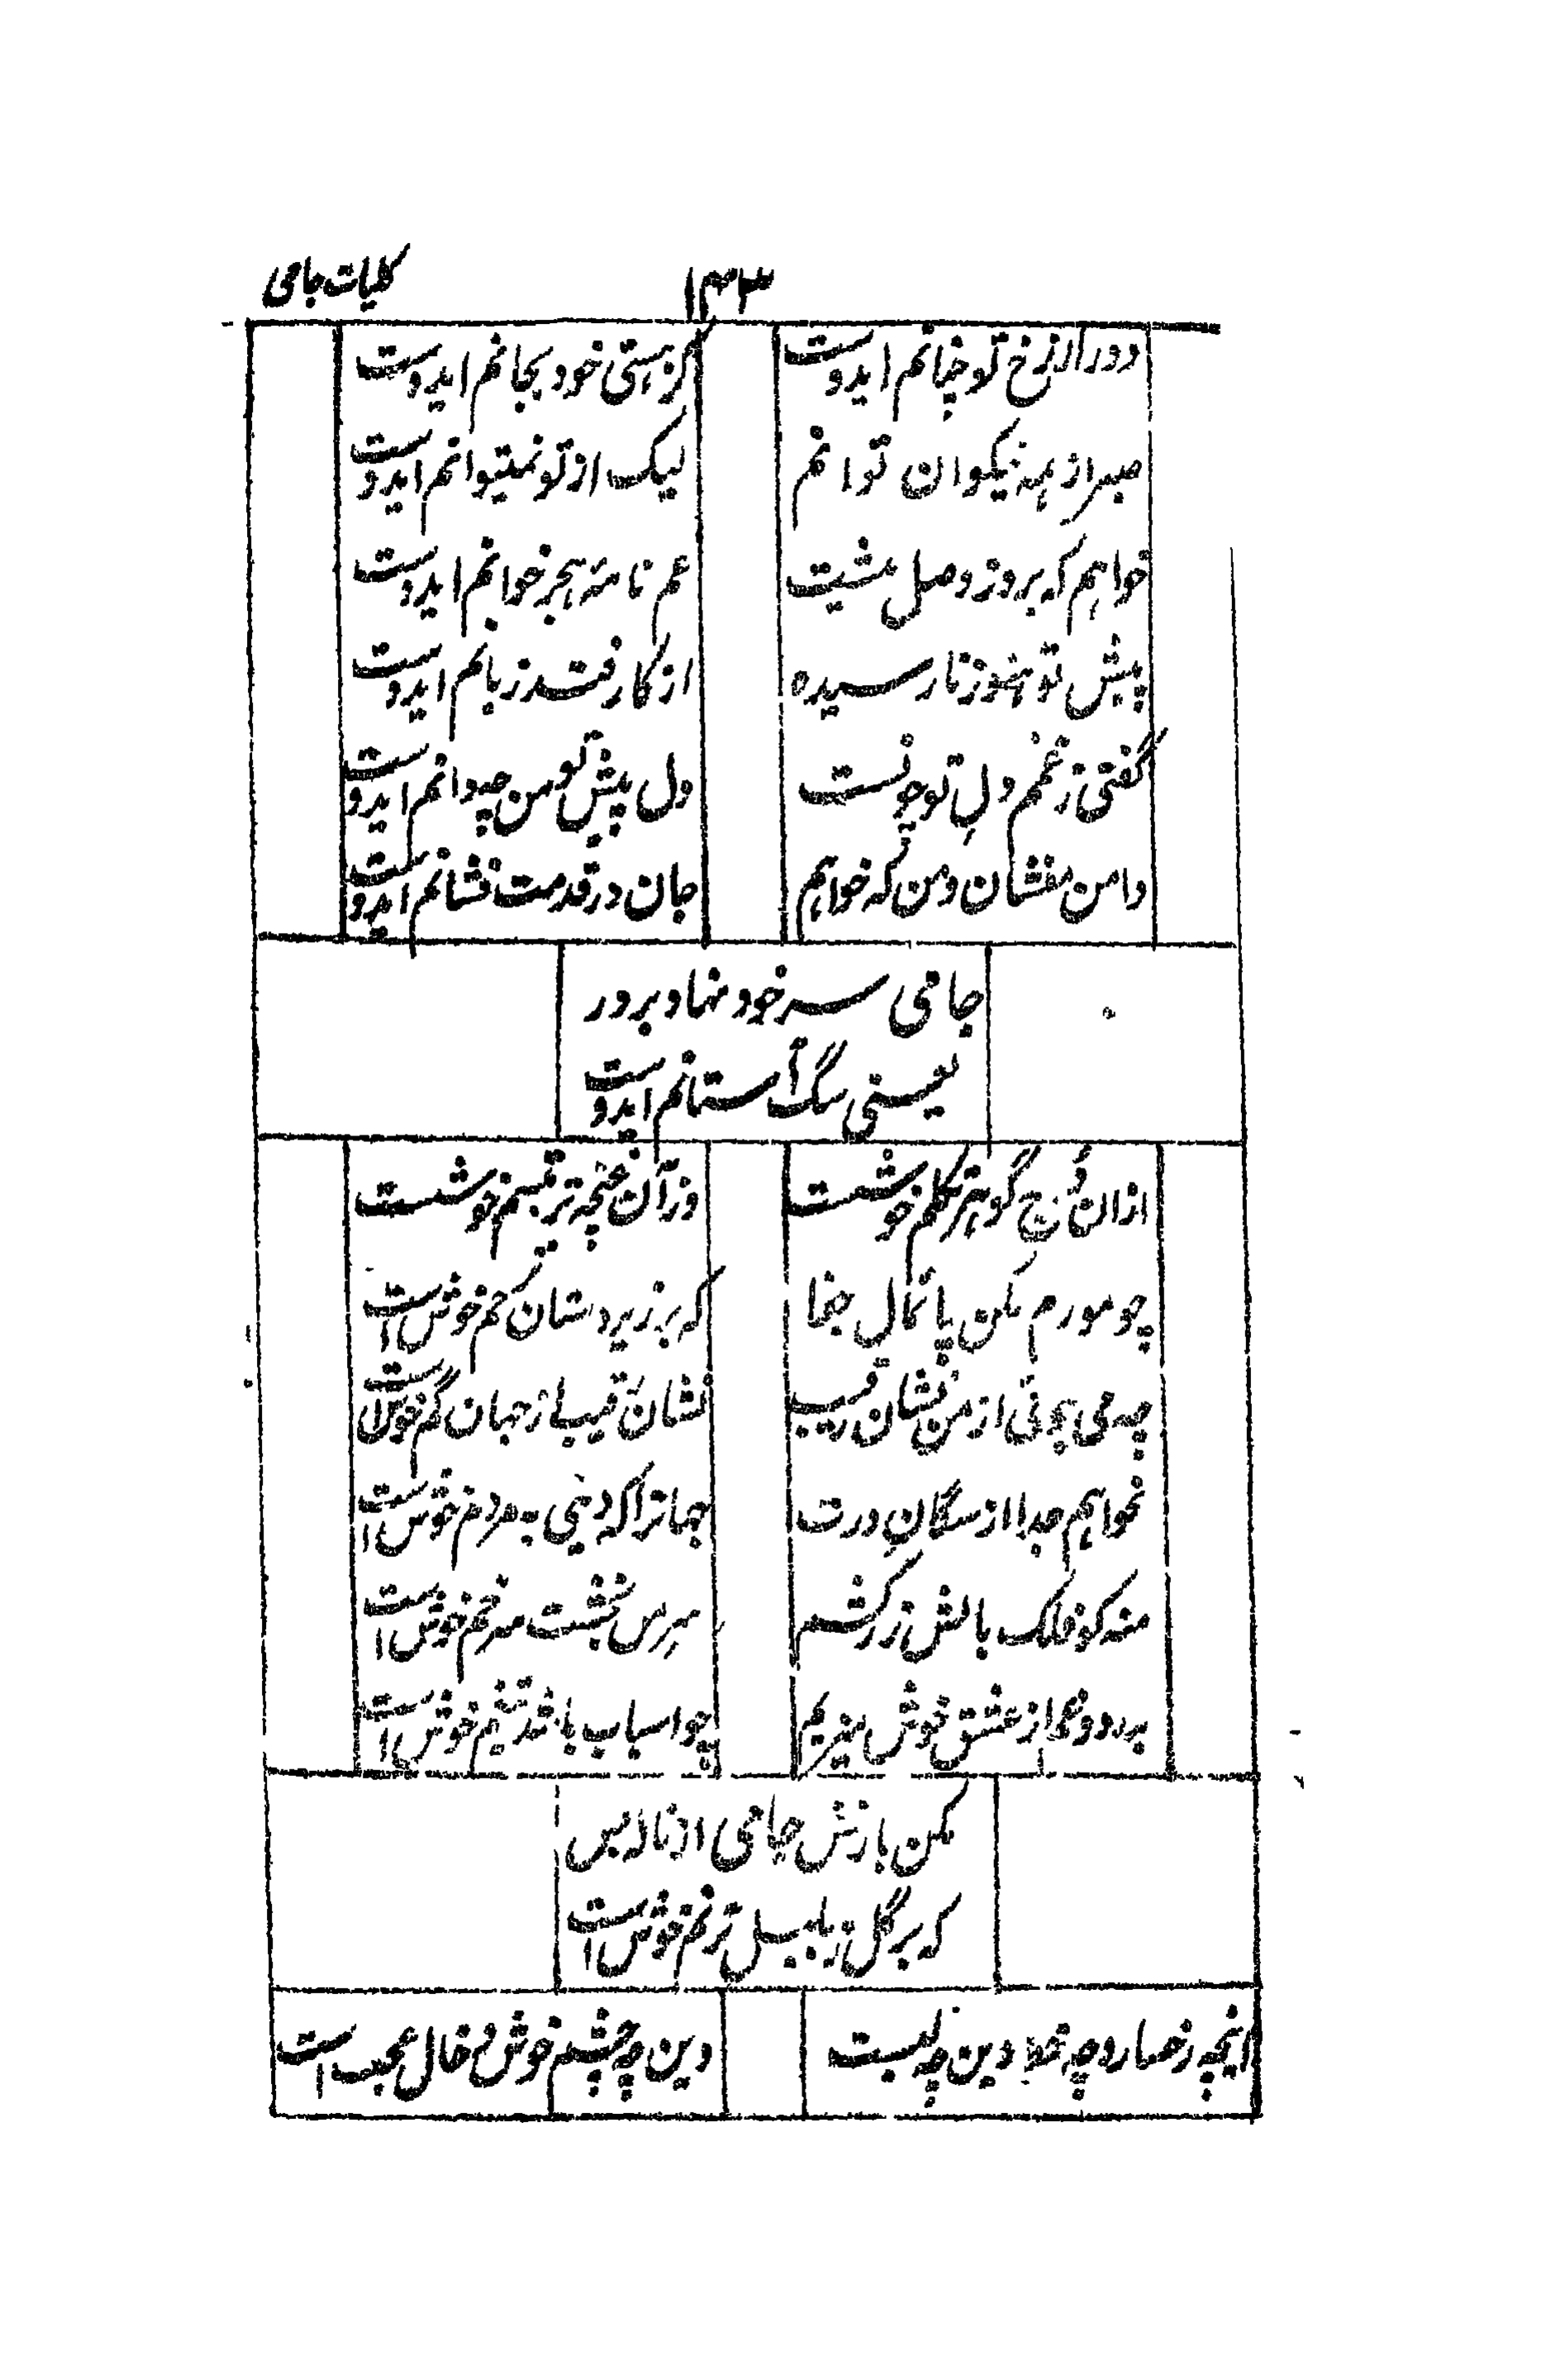 کلیات جامی
۱۴۳
دور از رخ تو چنانم ایدوست
کز هستی خود بجانم ایدوست
صبر از همه نیکوان توانم
لیک از تو نمیتوانم ایدوست
خواهم که بروز وصل پیشت
غم نامهٔ هجر خوانم ایدوست
پیش تو هنوز نارسیده
از کار فتد زبانم ایدوست
گفتی ز غمم دلِ تو چونست
دل پیش تو من چه دانم ایدوست
دامن مفشان ز من که خواهم
جان در قدمت فشانم ایدوست
جامی سر خود نهاد بر در
یعنی سگ آستانم ایدوست
ازان دُرج گوهر تکلم خوشست
وزآن غنچه تر تبسم خوشست
چو مورم مکن پائمال جفا
که بر زیردستان ترحم خوش است
چه می جوئی از من نشان رقیب
نشان رقیب از جهان گم خوش است
نخواهم جدا از سگانِ درت
جهانرا که دینی به مردم خوش است
منه گو فلک بالش زرکشم
سرم بخشت سر خم خوش است
بدرد و غم از عشق خوش میزیم
چو اسباب باشد تنعم خوش است
مکن باز منش جامی از ناله بس
که بر گل ز بلبل ترنم خوش است
اینچه رخسار وچه وین چه لبست
وین چه چشم خوش و خال عجب است